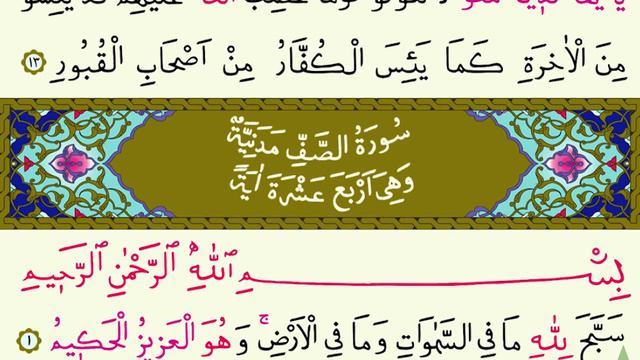 مِنَ الْاٰخِرَةِ كَمَا يَئِسَ الْكُفَّارُ مِنْ اَصْحَابِ الْقُبُورِ ١٣
سُورَةُ الصَّفِّ مَدَنِيَّةٌ
وَهِىَ اَرْبَعَ عَشْرَةَ اٰيَةً
بِسْمِ اللّٰهِ الرَّحْمٰنِ الرَّحٖيمِ
سَبَّحَ لِلّٰهِ مَا فِى السَّمٰوَاتِ وَمَا فِى الْاَرْضِۚ وَهُوَ الْعَزٖيزُ الْحَكٖيمُ ١